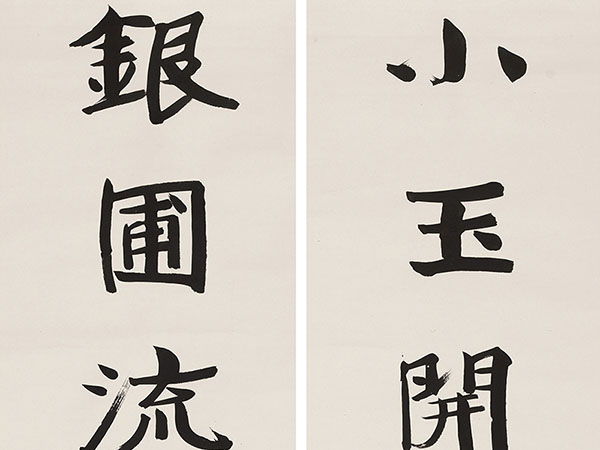 小玉開
銀圃流